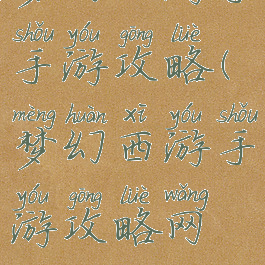 shǒu yóu gōng lüè
手游攻略(
mèng huàn xī yóu shǒu
梦幻西游手
yóu gōng lüè wǎng
游攻略网